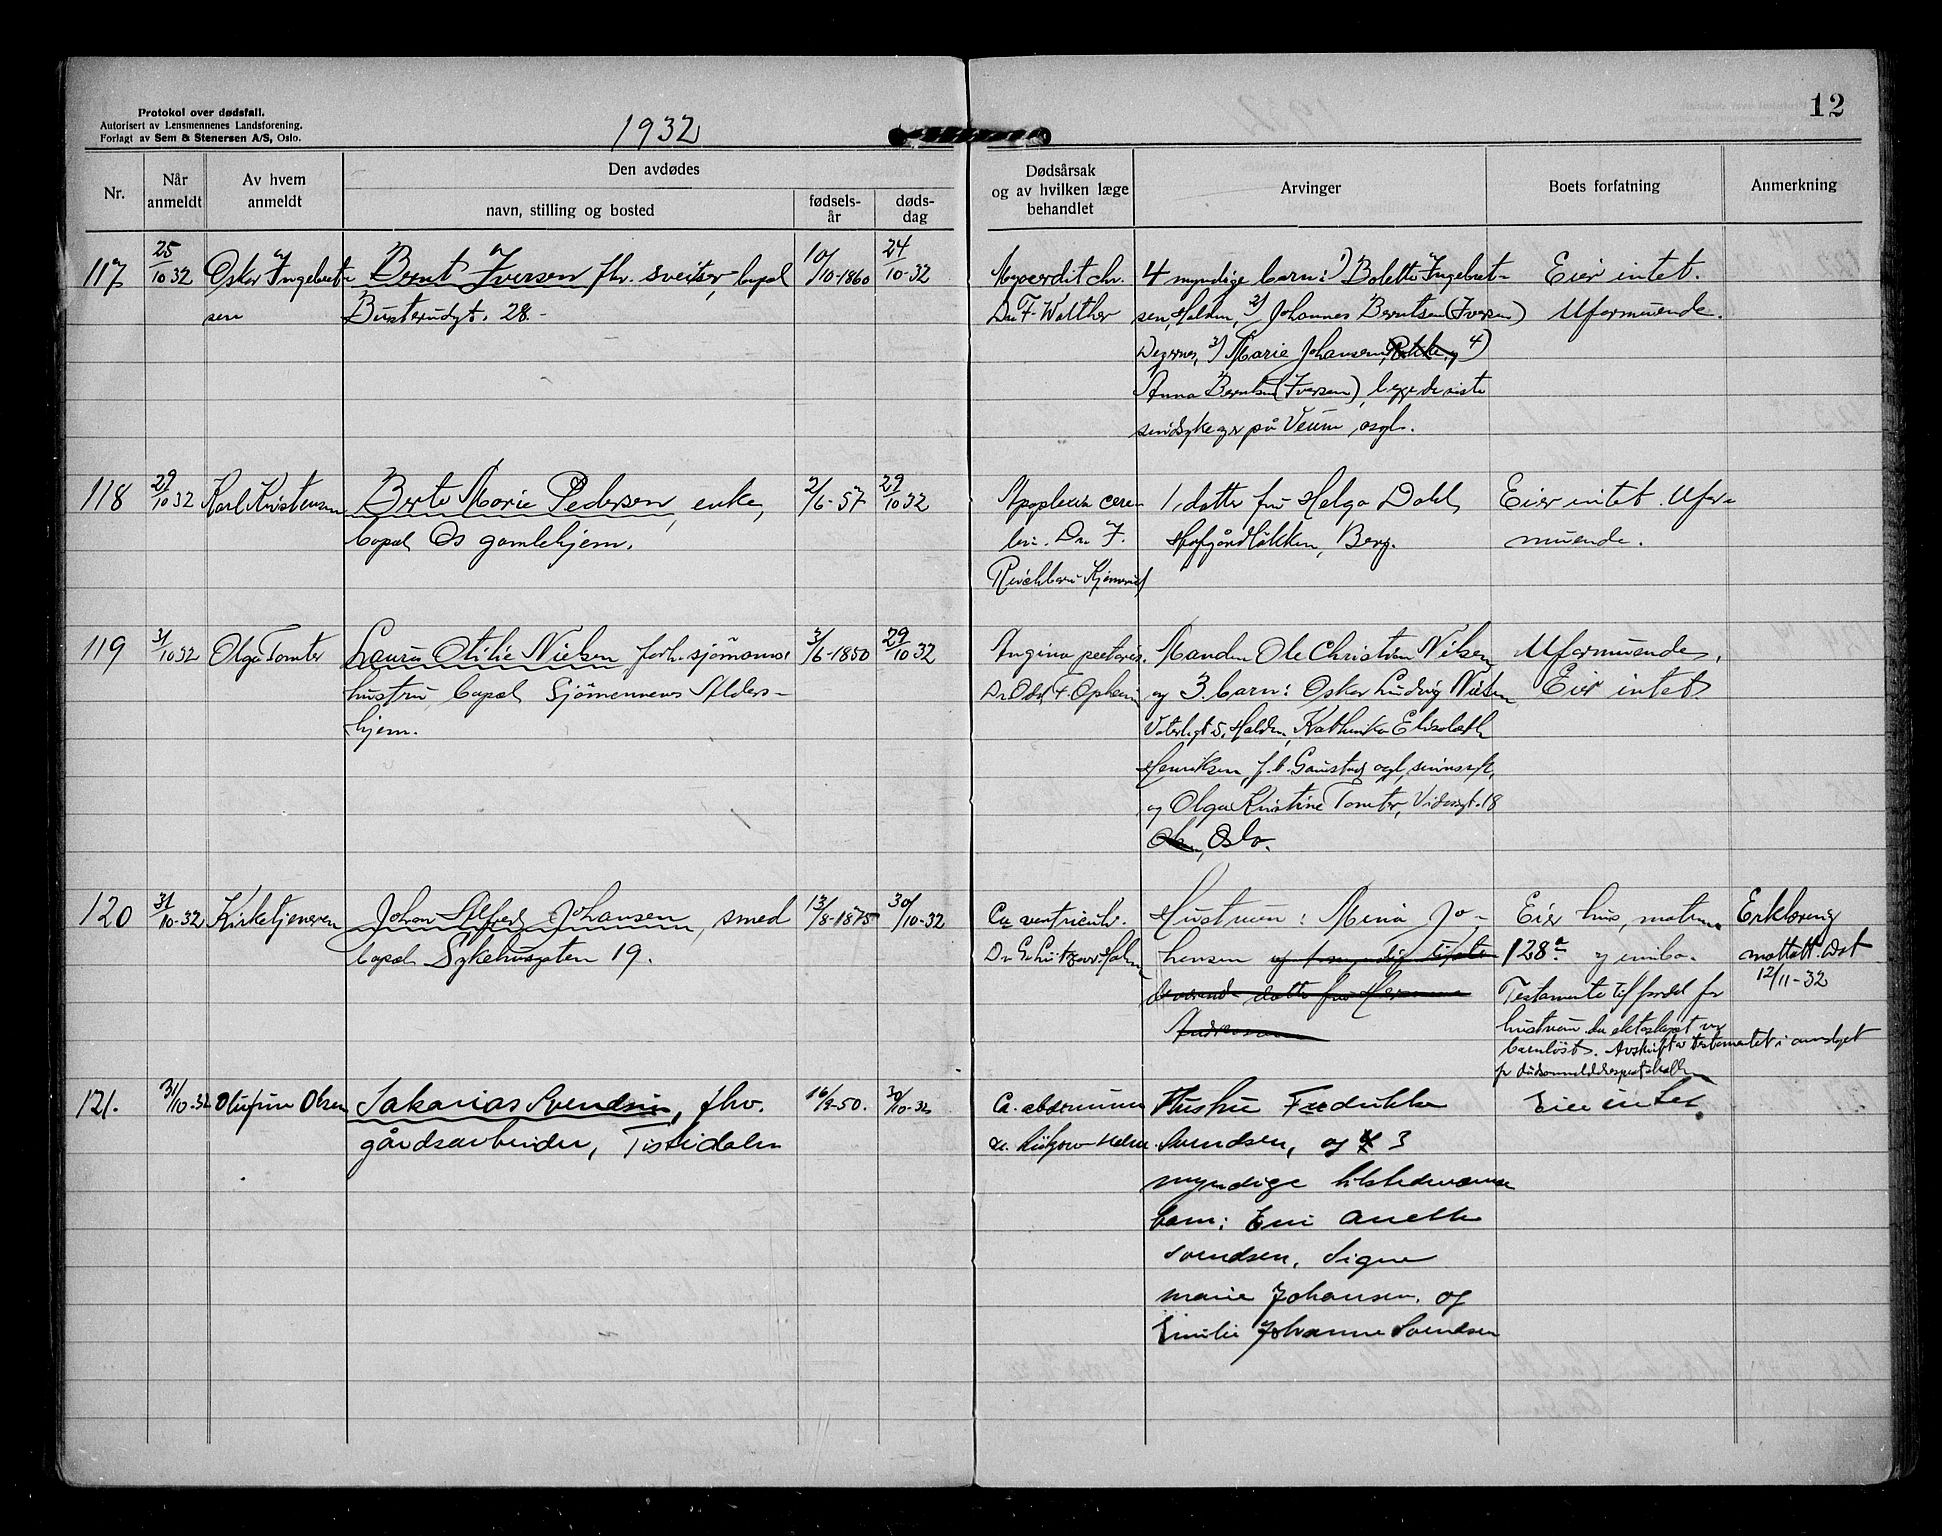 Protokol over dødsfall.
Autorisert av Lensmennenes Landsforening.
Forlagt av Sem & Stenersen A/S, Oslo.
1932
12
Nr.
Når anmeldt
Av hvem anmeldt
Den avdødes
navn, stilling og bosted
fødsels-år
døds-dag
Dødsårsak og av hvilken læge behandlet
Arvinger
Boets forfatning
Anmerkning
117
25/10 32
Oskar Ingebret-
sen
Bernt Iversen fhv. sveitser, bopæl
Busterudgt. 28.-
10/10-1860
24/10-32
Myocardit chr.
Dr. F. Walther
4 myndige barn: 1) Bolette Ingebret-
sen, Halden, 2) Johannes Berntsen (Iversen)
Degernes, 3) Marie Johansen, Rokke, 4)
Anna Berntsen (Iversen), begge de siste
sindsyke på Veum asyl.
Eier intet.
Uformuende.
118
29/10 32
Karl Kristensen
Berte Marie Pedersen, enke,
bopæl Os gamlehjem.
2/6-57
29/10 32
Apoplexia cere-
bri. Dr. F.
1 datter fru Helga Dahl,
Berg.
Eier intet. Ufor-
muende.
119
31/10 32
Olga Tomter
Laura Otilie Nielsen forh. sjømanns
hustru, bopæl Sjømennenes Alders-
hjem.
3/6-1850
29/10 32
Angina pectoris.
Dr. Odd F.
Manden Ole Christian Nilsen
og 3 barn: Oskar Ludvig Nielsen
Halden, Kathinka Elisabeth
Henriksen, f.t. Gaustad asyl, sinnssyk,
og Olga Kristine Tomter, 18
Oslo.
Uformuende.
Eier intet
120
31/10-32
Kirketjeneren
Johan Alfred Johansen, smed
bopæl Sykehusgaten 19.
13/8-1875
30/10-32
Ca ventriculi.
Hustruen: Mina Jo-
hansen og 1 myndig tilste
deværende datter fru Hermine
Andresen
Eier hus, matr.nr.
128a og innbo.
Testamente til fordel for
hustruen da ekteskapet var
barnløst. Avskrift av testamentet i omslaget
for
Erklæring
mottatt. Dat
12/11-32
121.
31/10-32
Olufine Olsen
Sakarias Svendsen, fhv.
gårdsarbeider, Tistedalen
16/9-50.
30/10-32
Ca. abdominis
Hustru Fredrikke
Svendsen, og 3
myndige tilstedeværende
barn: Eni Anette
Svendsen, Signe
Marie Johansen, og
Emilie Johanne Svendsen
Eier intet.